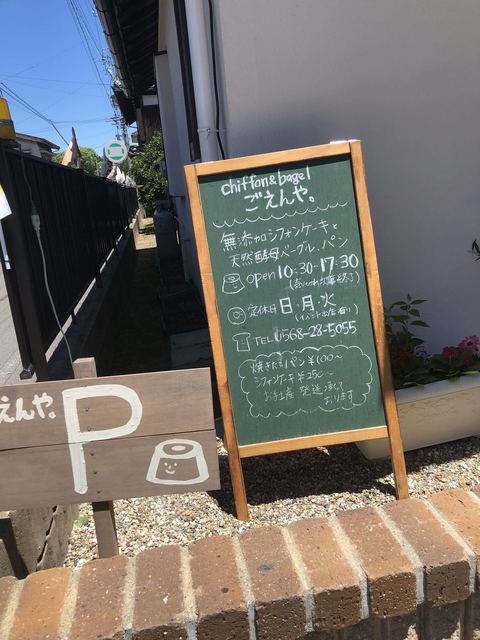 chiffon&bagel
ごえんや。
無添加シフォンケーキと
天然酵母ベーグル、パン
open 10:30-17:30
(売りきれ次第終了)
定休日 日・月・火
(イベント出店有り)
TEL 0568-28-5055
焼きたてパン ¥100〜
シフォンケーキ ¥250〜
お手土産 発送 承って
おります
えんや。
P